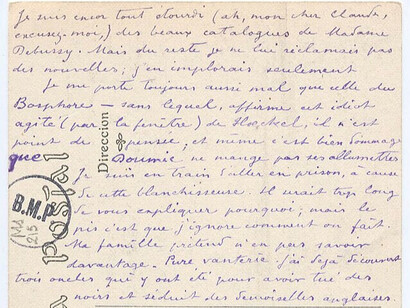 Je suis encor tout étourdi (ah, mon cher Claude,
excusez-moi,) des beaux catalogues de Madame
Debussy. Mais du reste je ne lui réclamais pas
des nouvelles; j'en implorais seulement
Je me porte toujours aussi mal que celle du
Bosphore — sans lequel, affirme cet idiot
agité (par la fenêtre) de Hœckel, il n'est
point de pensée, et même c'est bien dommage
que Doumic ne mange pas ses allumettes
Je suis en train d'aller en prison, à cause
de cette blanchisseuse. Il serait trop long
de vous expliquer pourquoi; mais le
pis c'est que j'ignore comment on fait.
Ma famille prétend n'en pas savoir
davantage. Pure vanterie. J'ai déjà découvert
trois oncles que y ont été pour avoir tué des
noirs et séduit des demoiselles anglaises.
Dirección
postal
B.M.P
Ms
215